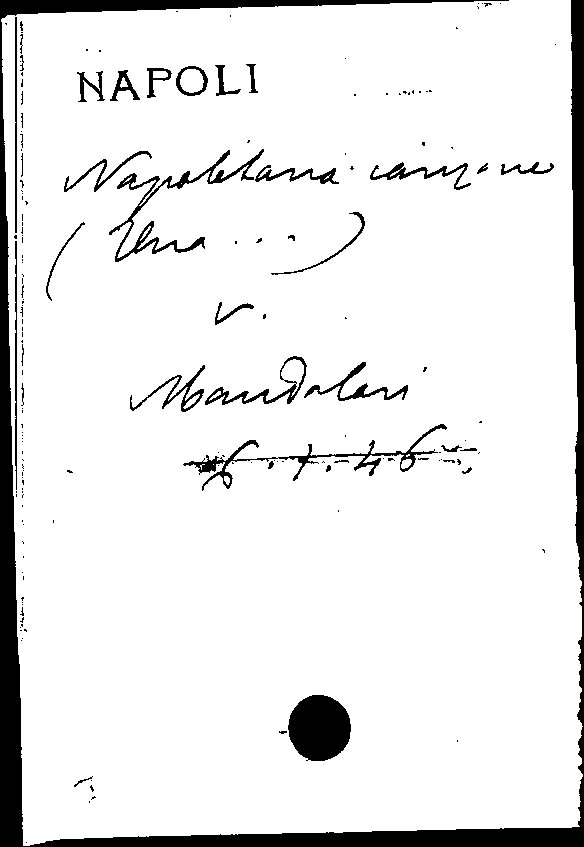 NAPOLI
Napoletana canzone
(Una ...)
v.
Mandalari
6.1.46